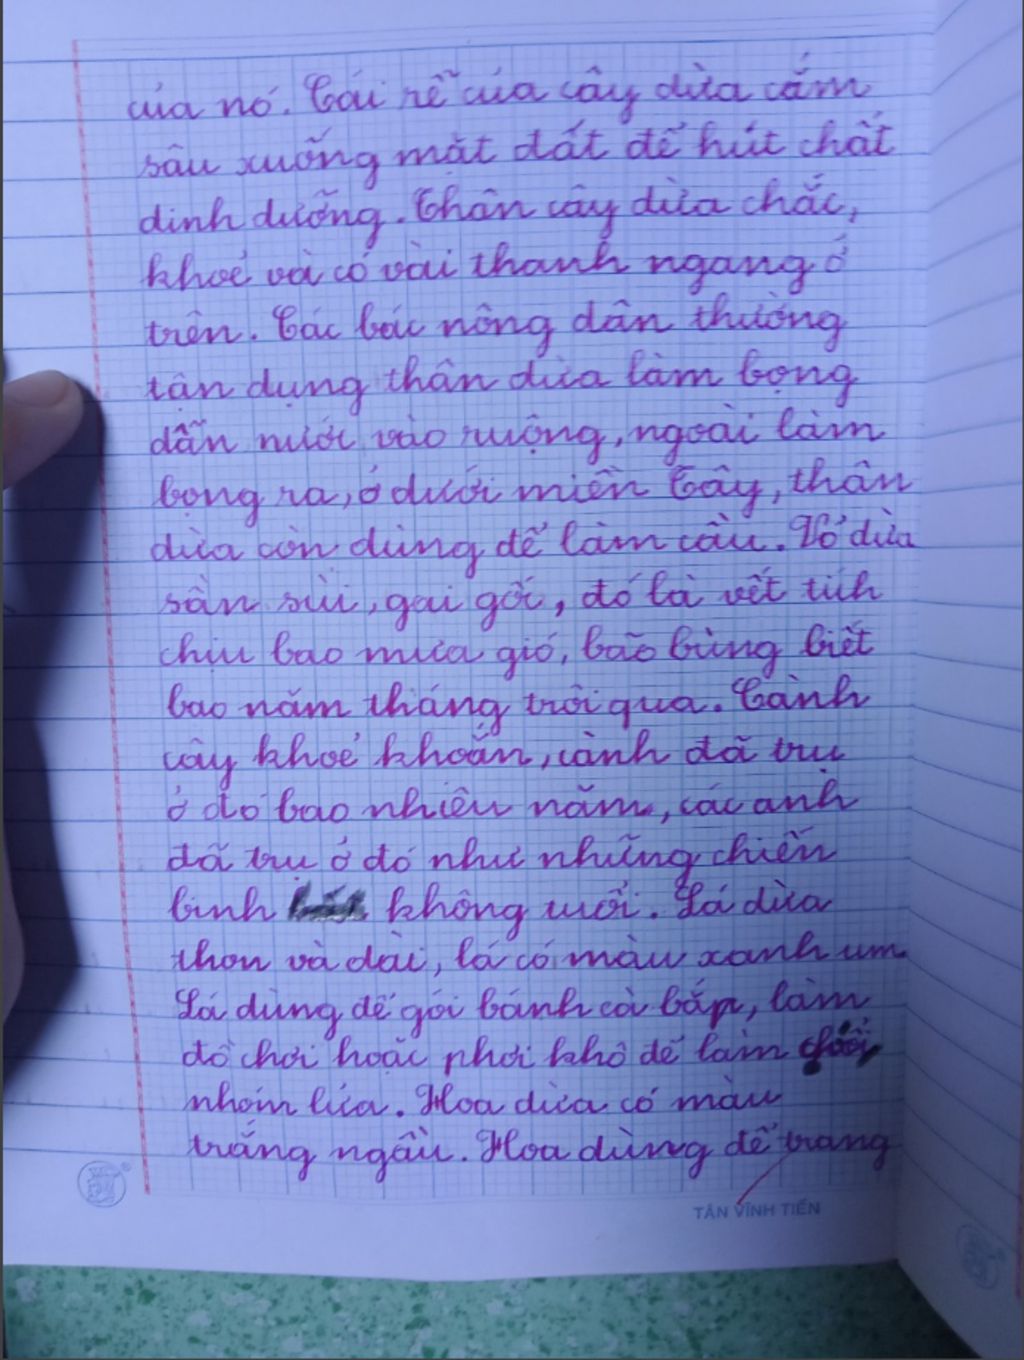 của nó. Cái rễ của cây dừa cắm
sâu xuống mặt đất để hút chất
dinh dưỡng. Thân cây dừa chắc,
khoẻ và có vài thanh ngang ở
trên. Các bác nông dân thường
tận dụng thân dừa làm bọng
dẫn nước vào ruộng, ngoài làm
bọng ra, ở dưới miền Tây, thân
dừa còn dùng để làm cầu. Vỏ dừa
sần sùi, gai gốc, đó là vết tích
chịu bao mưa gió, bão bùng biết
bao năm tháng trôi qua. Cành
cây khoẻ khoắn, cành đã trụ
ở đó bao nhiêu năm, các anh
đã trụ ở đó như những chiến
binh không tuổi. Lá dừa
thon và dài, lá có màu xanh um.
Lá dùng để gói bánh cà bắp, làm
đồ chơi hoặc phơi khô để làm
nhóm lửa. Hoa dừa có màu
trắng ngầu. Hoa dùng để trang
TÂN VĨNH TIẾN